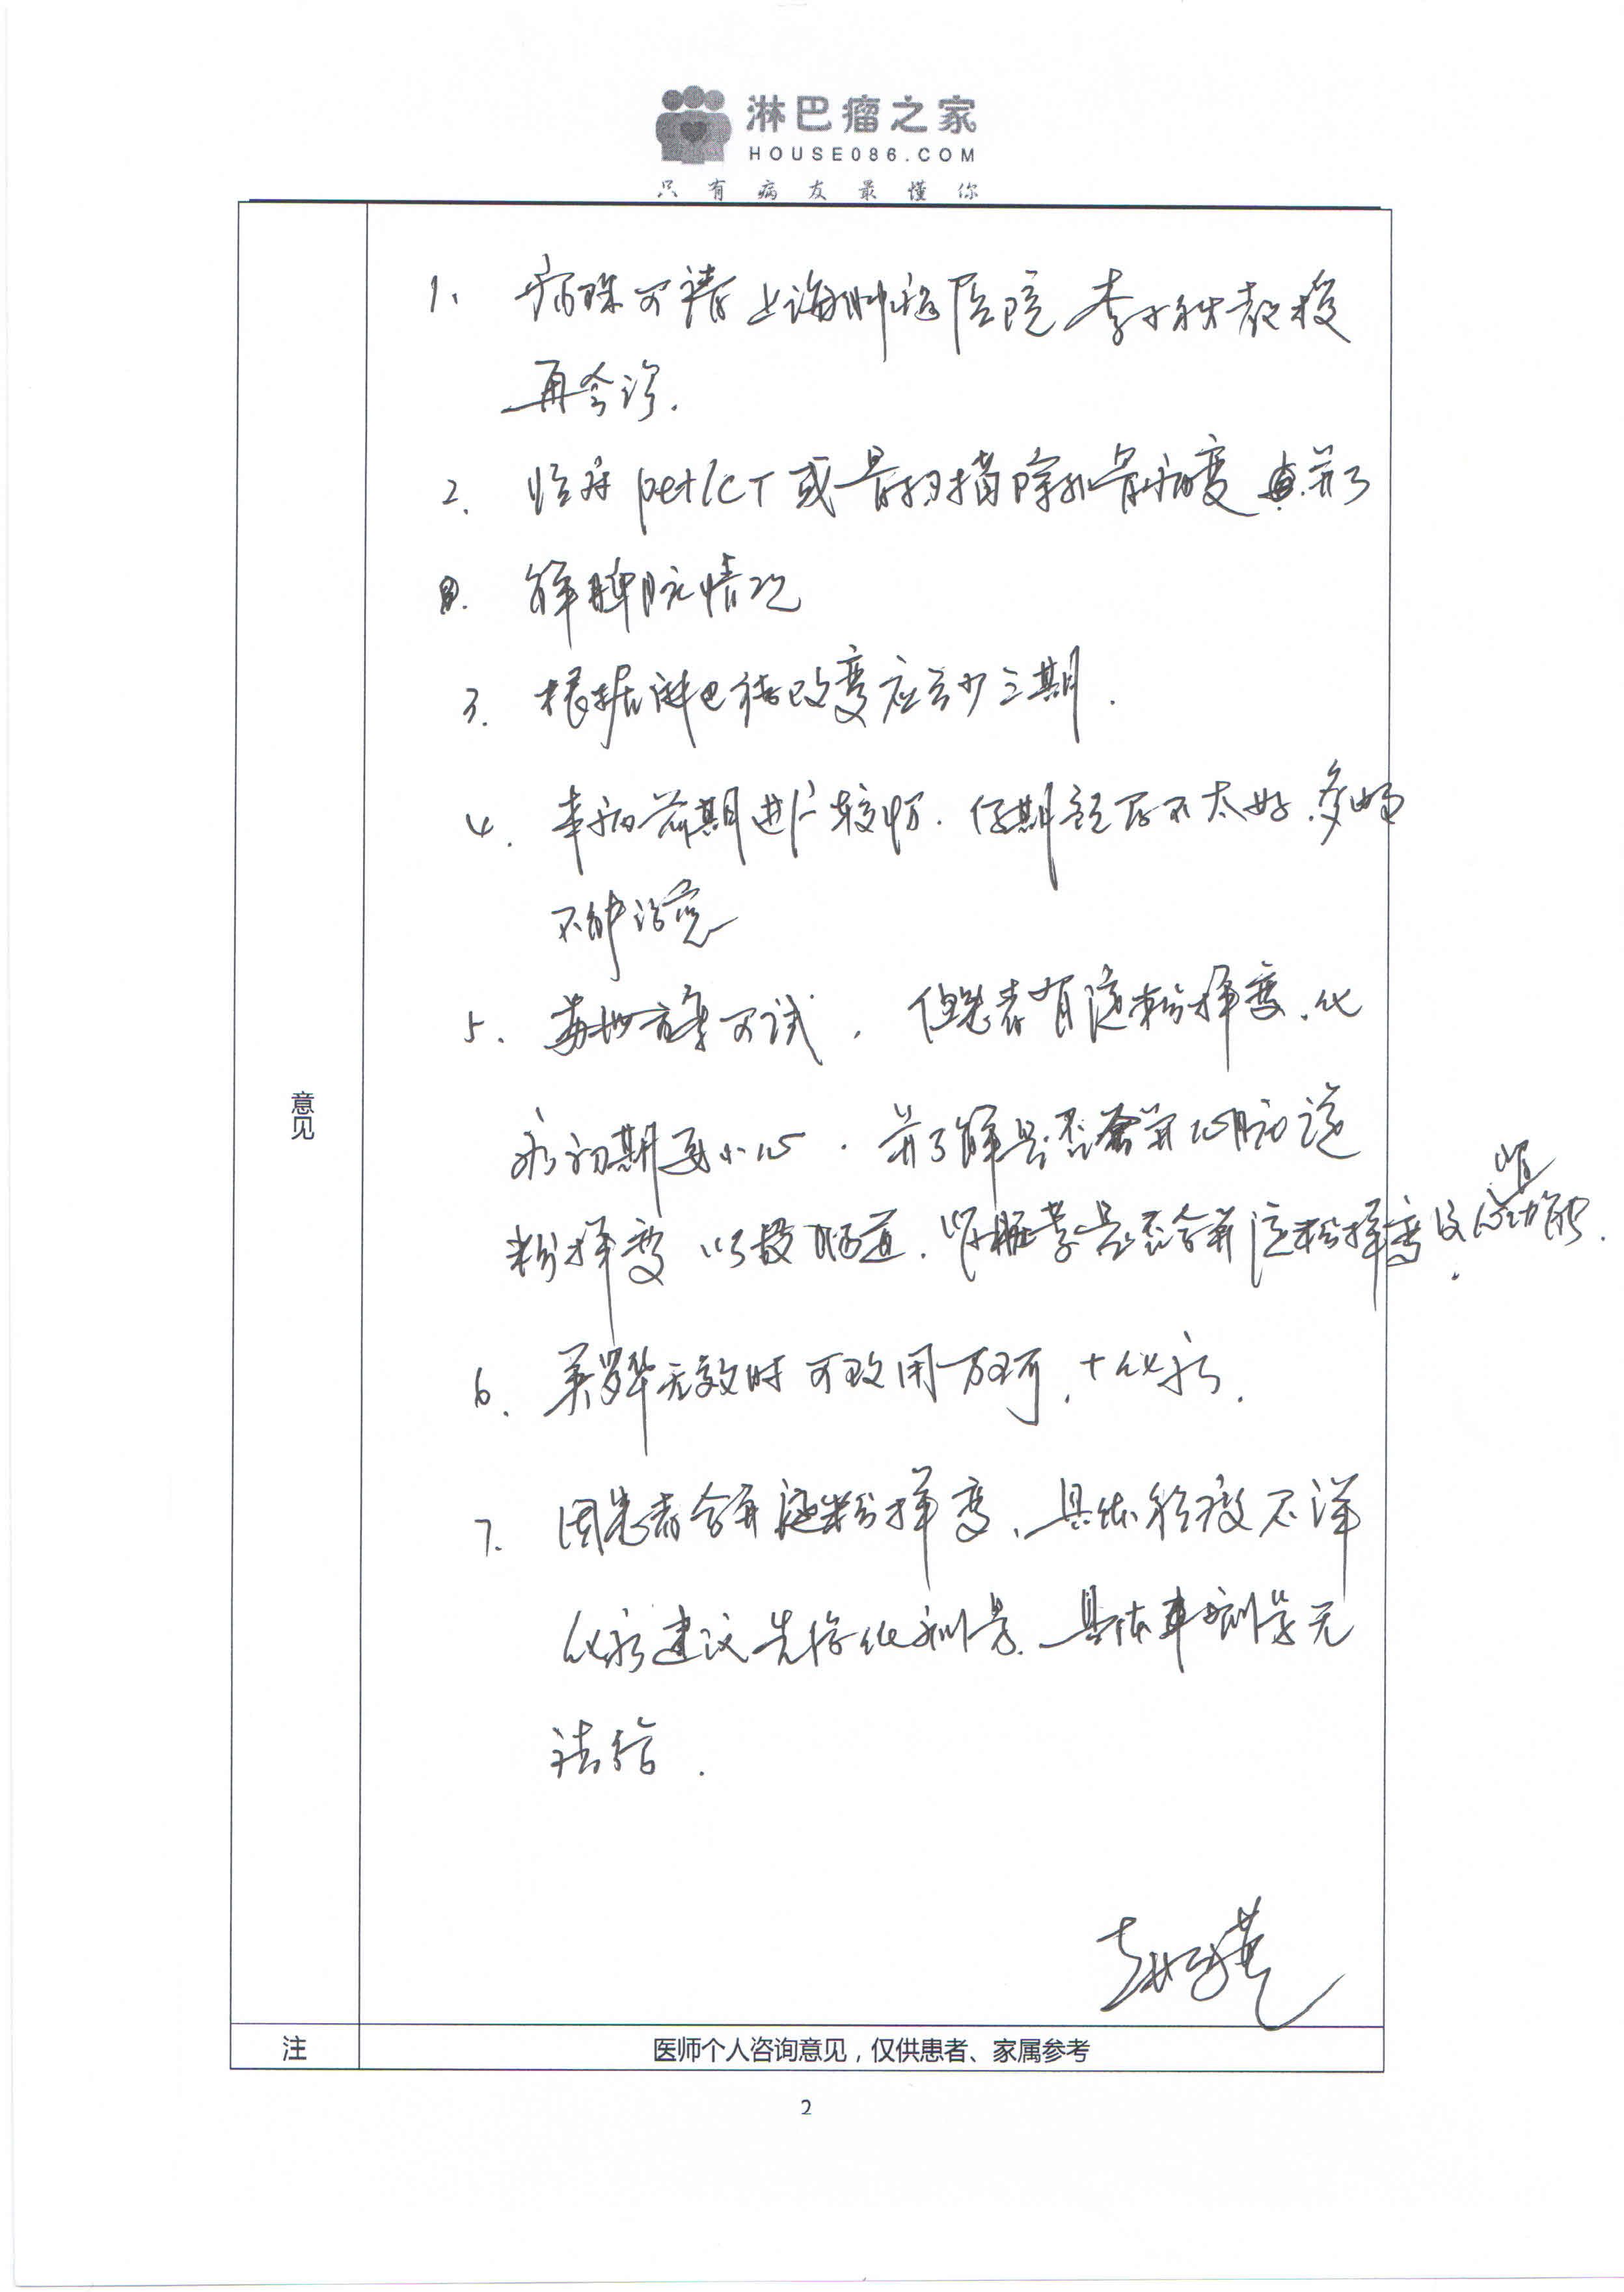 淋巴瘤之家
HOUSE086.COM
只有病友最懂你
意见
1、病理可请上海肿瘤医院李小秋教授
再会诊.
2. 临床pet/CT或骨扫描除外骨病变 并了
解脾脏情况
3. 根据淋巴结改变应至少三期.
4. 本病前期进行较慢.但期预后不太好.多数
不能治愈
5. 方案可试,但患者有淀粉样变.化
疗初期要小心.并了解是否合并心脏淀
粉样变以及肠道.肾脏等是否合并淀粉样变及心肾功能.
6. 美罗华无效时可改用万珂.+化疗.
7. 因患者合并淀粉样变、具体程度不详
化疗建议先停化剂量.具体剂量无
法估.
注
医师个人咨询意见,仅供患者、家属参考
2